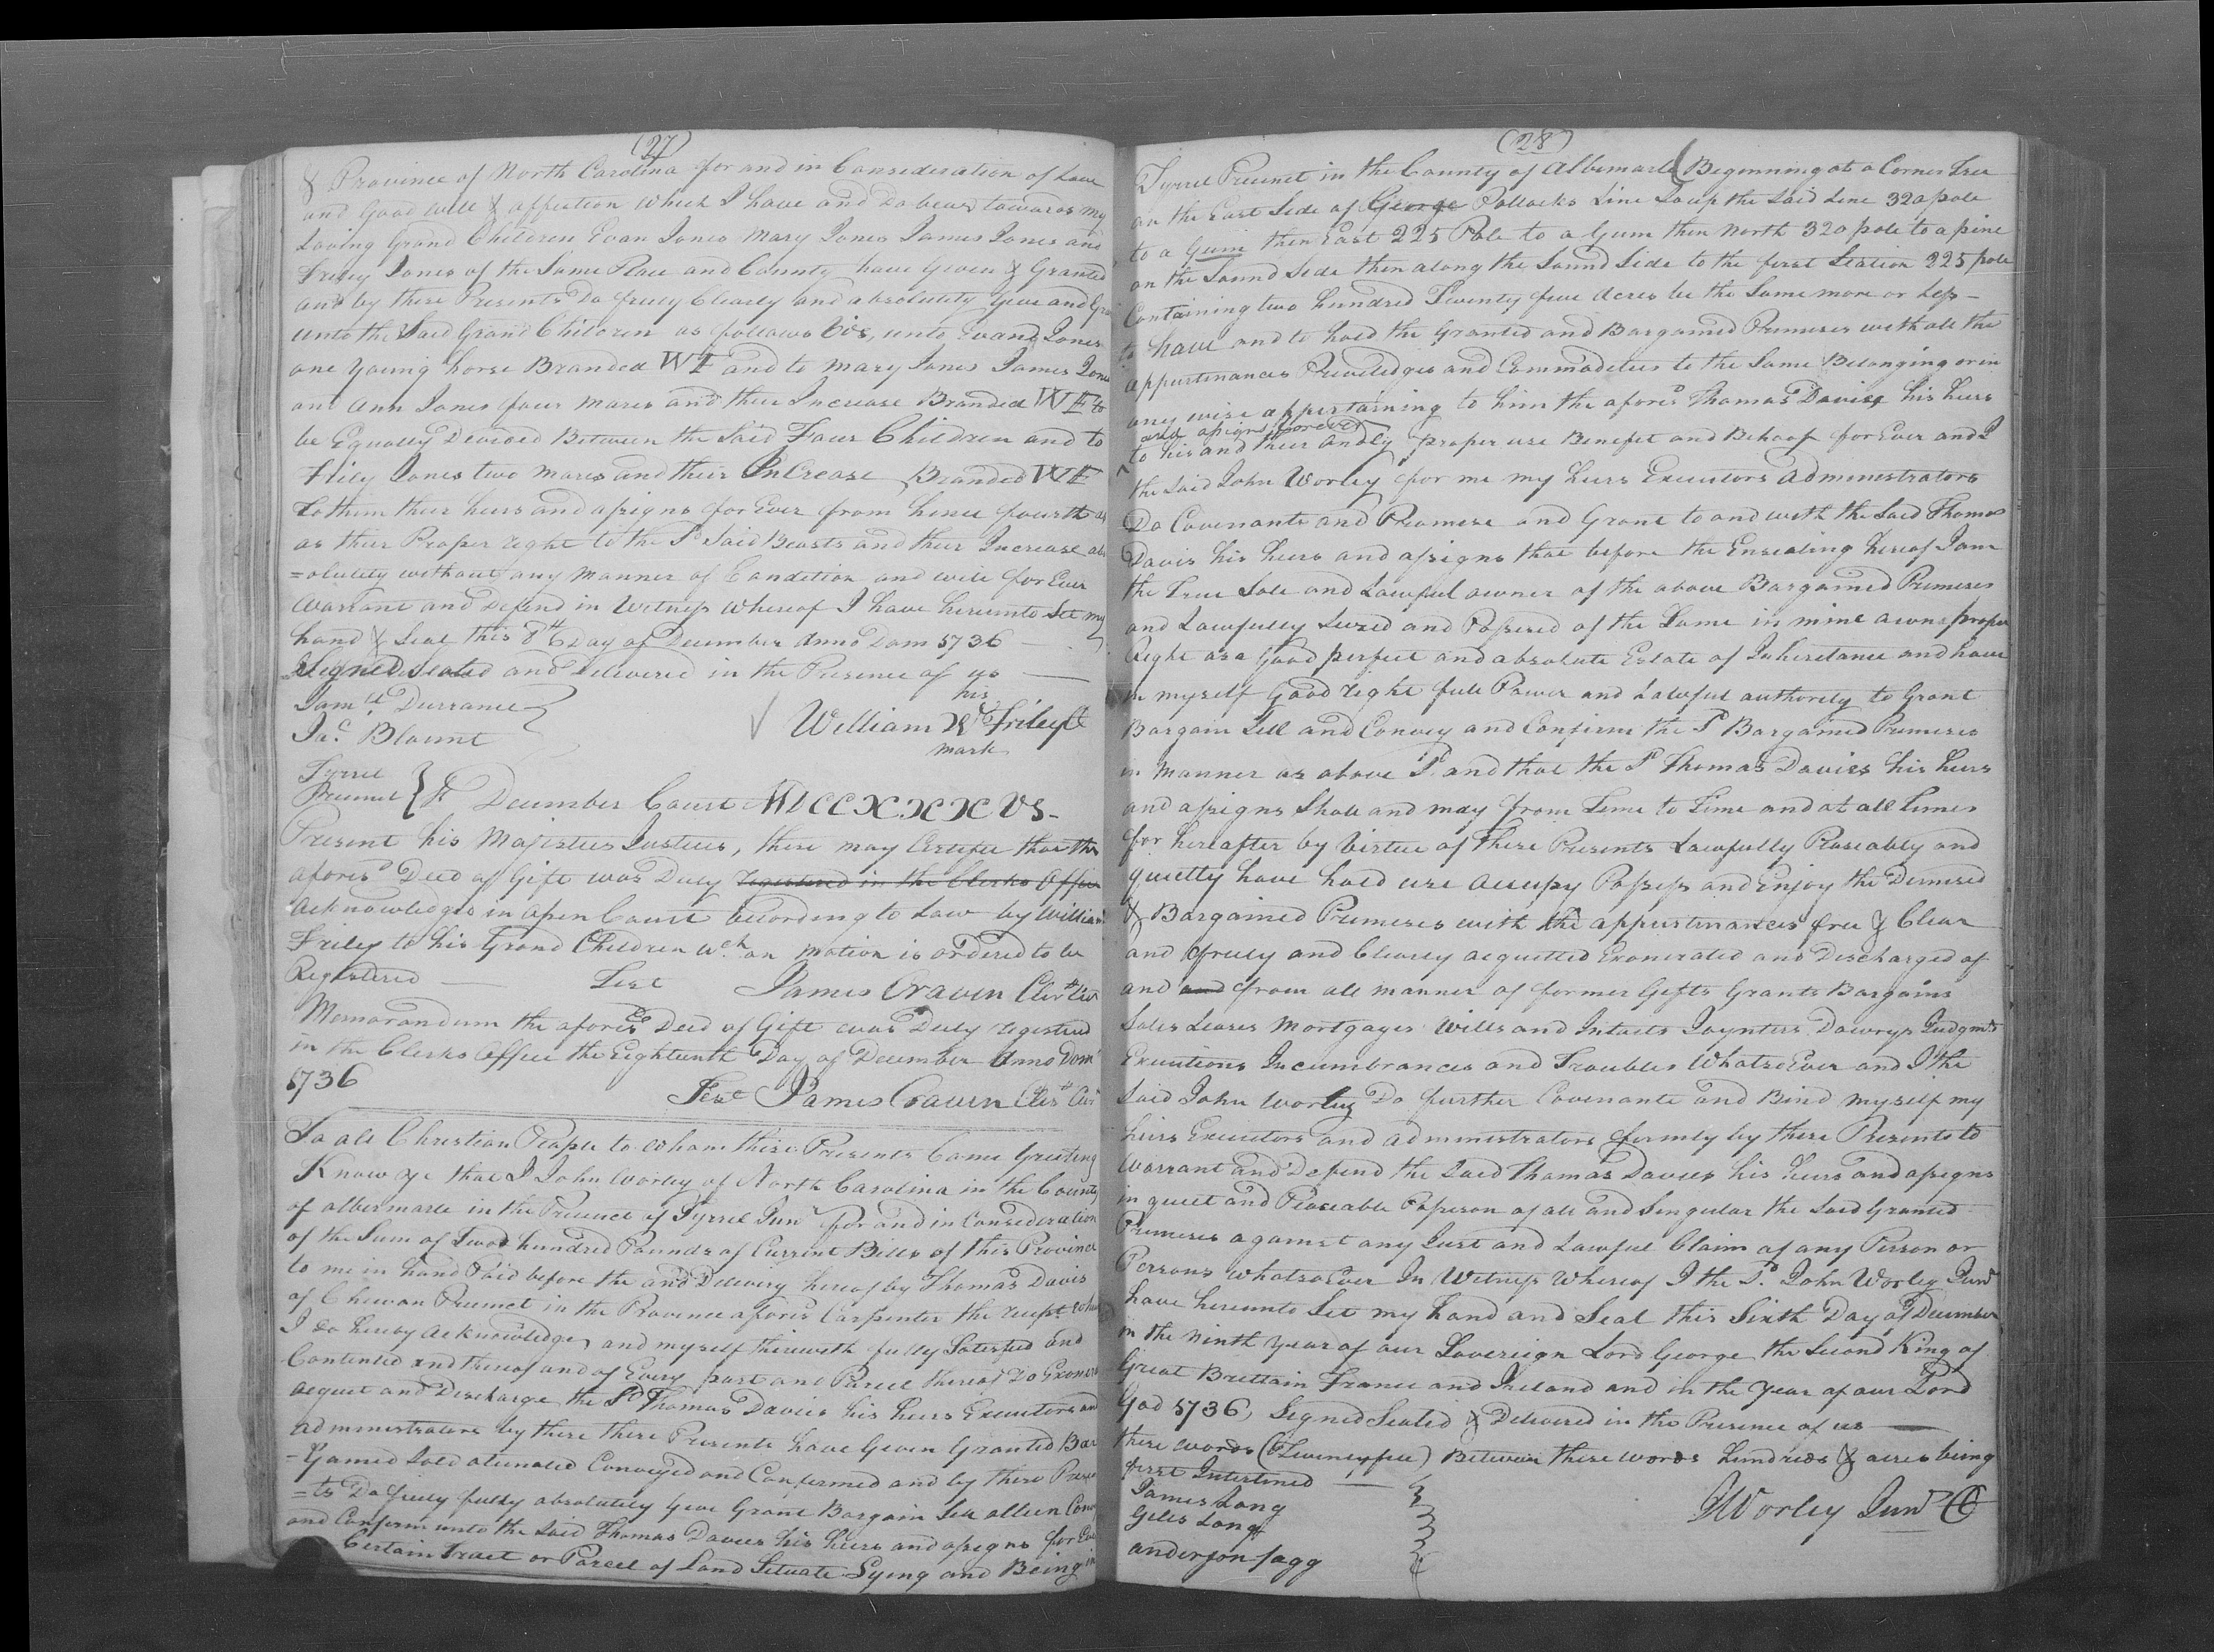 (27)
& Province of North Carolina for and in Consideration of Love
and Good will & affection which I have and Do bear towards my
Loving Grand Children Evan Jones Mary Jones James Jones and
Friley Jones of the Same Place and County have Given & Granted
and by these Presents Do freely Clearly and absolutely Give and Gra
unto the Said Grand Children as follows Vis, unto Evand Jones
one Young horse Branded WF and to Mary Jones James Jones
and Ann Jones four Mares and their Increase Branded WF to
be Equally Devided Between the Said Four Children and to
Friley Jones two Mares and their Increase Branded WF
To them their heirs and assigns for Ever from hence fourth as
as their Proper right to the Sd Said Beasts and their Increase abs
=olutely without any Manner of Condition and will for Ever
Warrant and Defend in Witness whereof I have hereunto Set my
hand & Seal this 8th Day of December Anno Dom 1736
Signed Sealed and Delivered in the Presence of us
Samll Durrance
Jac Blount
his
William W Friley
mark
Tyrrel
Precinct } At December Court MDCCXXXVI
Present his Majesties Justices, these may Certifie that the
aforesd Deed of Gift was Duly registered in the Clerks Office
Acknowledged in Open Court According to Law by William
Friley to his Grand Children wch on Motion is ordered to be
Registered Test James Craven Clert Cur
Memorandum the aforesd Deed of Gift was Duly registered
in the Clerks Office the Eighteenth Day of December Anno Dom
1736
Test James Craven Cler Cur
To all Christian People to whom these Presents Come Greeting
Know ye that I John Worley of North Carolina in the County
of albermarle in the Precinct of Tyrrel Junr for and in Consideration
of the Sum of Two hundred Pounds of Current Bills of this Province
to me in hand Paid before the and Delivery hereof by Thomas Davis
of Chowan Precinct in the Province aforesd Carpenter the receipt whe
I do hereby Acknowledge and myself therewith fully Satisfied and
Contented and thereof and of Every part and Parcel thereof Do Exonera
acquit and Discharge the Sd Thomas Davies his heirs Executors and
administrators by these these Presents have Given Granted Bar
=gained Sold alienated Conveyed and Confirmed and by these Prese
=ts Do freely fully absolutely Give Grant Bargain Sell allien Conv
and Confirm unto the Said Thomas Davies his heirs and assigns for Eve
Certain Tract or Parcel of Land Situate Lying and Being in
(28)
Tyrrel Precinct in the County of Albemarle (Beginning at a Corner Tree
on the East Side of George Pollocks Line So up the Said Line 320 pole
to a Gum then East 225 Pole to a Gum then North 320 pole to a pine
on the Sound Side then along the Sound Side to the first Station 225 pole
Containing two hundred Twenty five Acres be the Same more or Less
to have and to hold the Granted and Bargained Premises with all the
appurtinances Priviledges and Commodities to the Same Belonging or in
any wise appertaining to him the aforesd Thomas Davies his heirs
and assigns forever
to his and their Andly proper use Benefet and Behoof for Ever and I
the Said John Worley for me my heirs Executors administrators
Do Covenante and Promise and Grant to and with the Said Thomas
Davis his heirs and assigns that before the Ensealing hereof I am
the True Sole and Lawful owner of the above Bargained Premises
and Lawfully Seized and Possesed of the Same in mine owne proper
Right as a Good perfect and absolute Estate of Inheritance and have
in myself Good right full Power and Lawful authority to Grant
Bargain Sell and Convey and Confirm the Sd Bargained Premises
in Manner as above Sd and that the Sd Thomas Davies his heirs
and assigns Shall and may from Time to Time and at all Times
for hereafter by Virtue of these Presents Lawfully Peaceably and
quietly have hold use Occupy Possess and Enjoy the Demised
& Bargained Premises with the appurtinances free & Clear
and freely and Clearly acquitted Exonerated and Discharged of
and and from all Manner of former Gifts Grants Bargains
Sales Leases Mortgages Wills and Intails Joynters Dowrys Judgmts
Executions Incumbrances and Troubles WhatsoEver and I the
Said John Worley Do further Covenante and Bind myself my
heirs Executors and administrators formly by these Presents to
Warrant and Defend the Said Thomas Davies his heirs and assigns
in quiet and Peaceable Possesson of all and Singular the Said Granted
Premises against any Just and Lawful Claim of any Person or
Persons whatsoEver In Witness Whereof I the Sd John Worley Junr
have hereunto Set my hand and Seal this Sixth Day of December
in the Ninth year of our Sovereign Lord George the Second King of
Great Brittain France and Ireland and in the year of our Lord
God 1736, Signed Sealed & Delivered in the Presence of us
these words (Twenty five) Between these words hundreds & acres being
first Interlined
James Long
Giles Long
anderson fagg
J Worley Junr